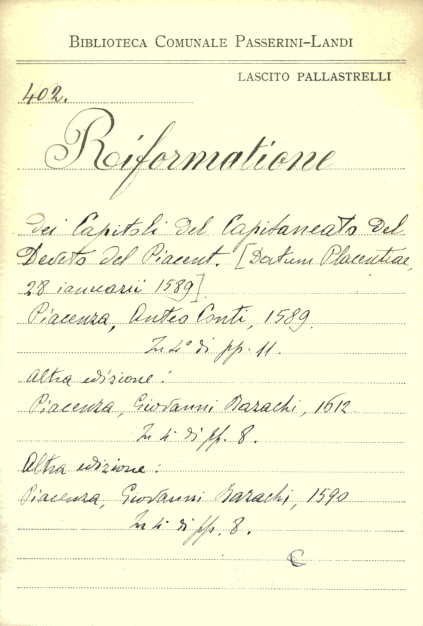 BIBLIOTECA COMUNALE PASSERINI-LANDI
LASCITO PALLASTRELLI
402.
Riformatione
dei Capitoli del Capitaneato del
Deveto del Piacent. [Datum Placentiae,
28 ianuarii 1589]
Piacenza, Anteo Conti, 1589.
In 4° di pp. 11.
Altra edizione:
Piacenza, Giovanni Bazachi, 1612
In 4° di pp. 8.
Altra edizione:
Piacenza, Giovanni Bazachi, 1590
In 4° di pp. 8.
C